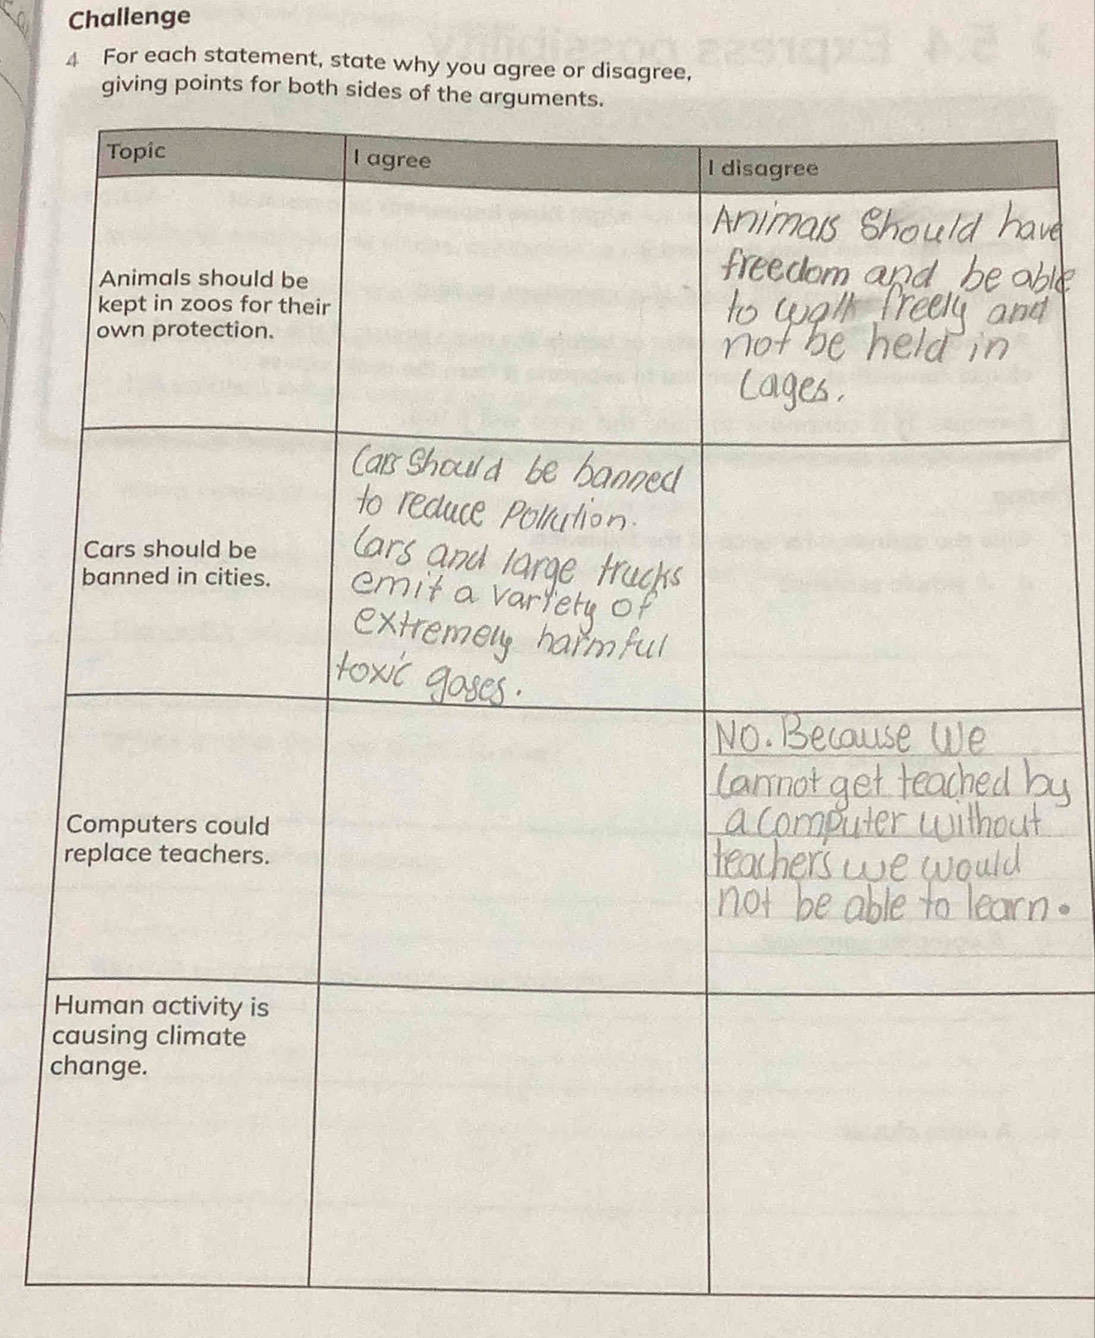 Challenge
4 For each statement, state why you agree or disagree,
giving points for both sides of the arguments.
Topic
I agree
I disagree
Animals should be
kept in zoos for their
own protection.
Animals should have
freedom and be able
to walk freely and
not be held in
cages.
Cars should be
banned in cities.
Cars should be banned
to reduce pollution.
Cars and large trucks
emit a variety of
extremely harmful
toxic gases.
Computers could
replace teachers.
No. Because we
cannot get teached by
a computer without
teachers we would
not be able to learn.
Human activity is
causing climate
change.